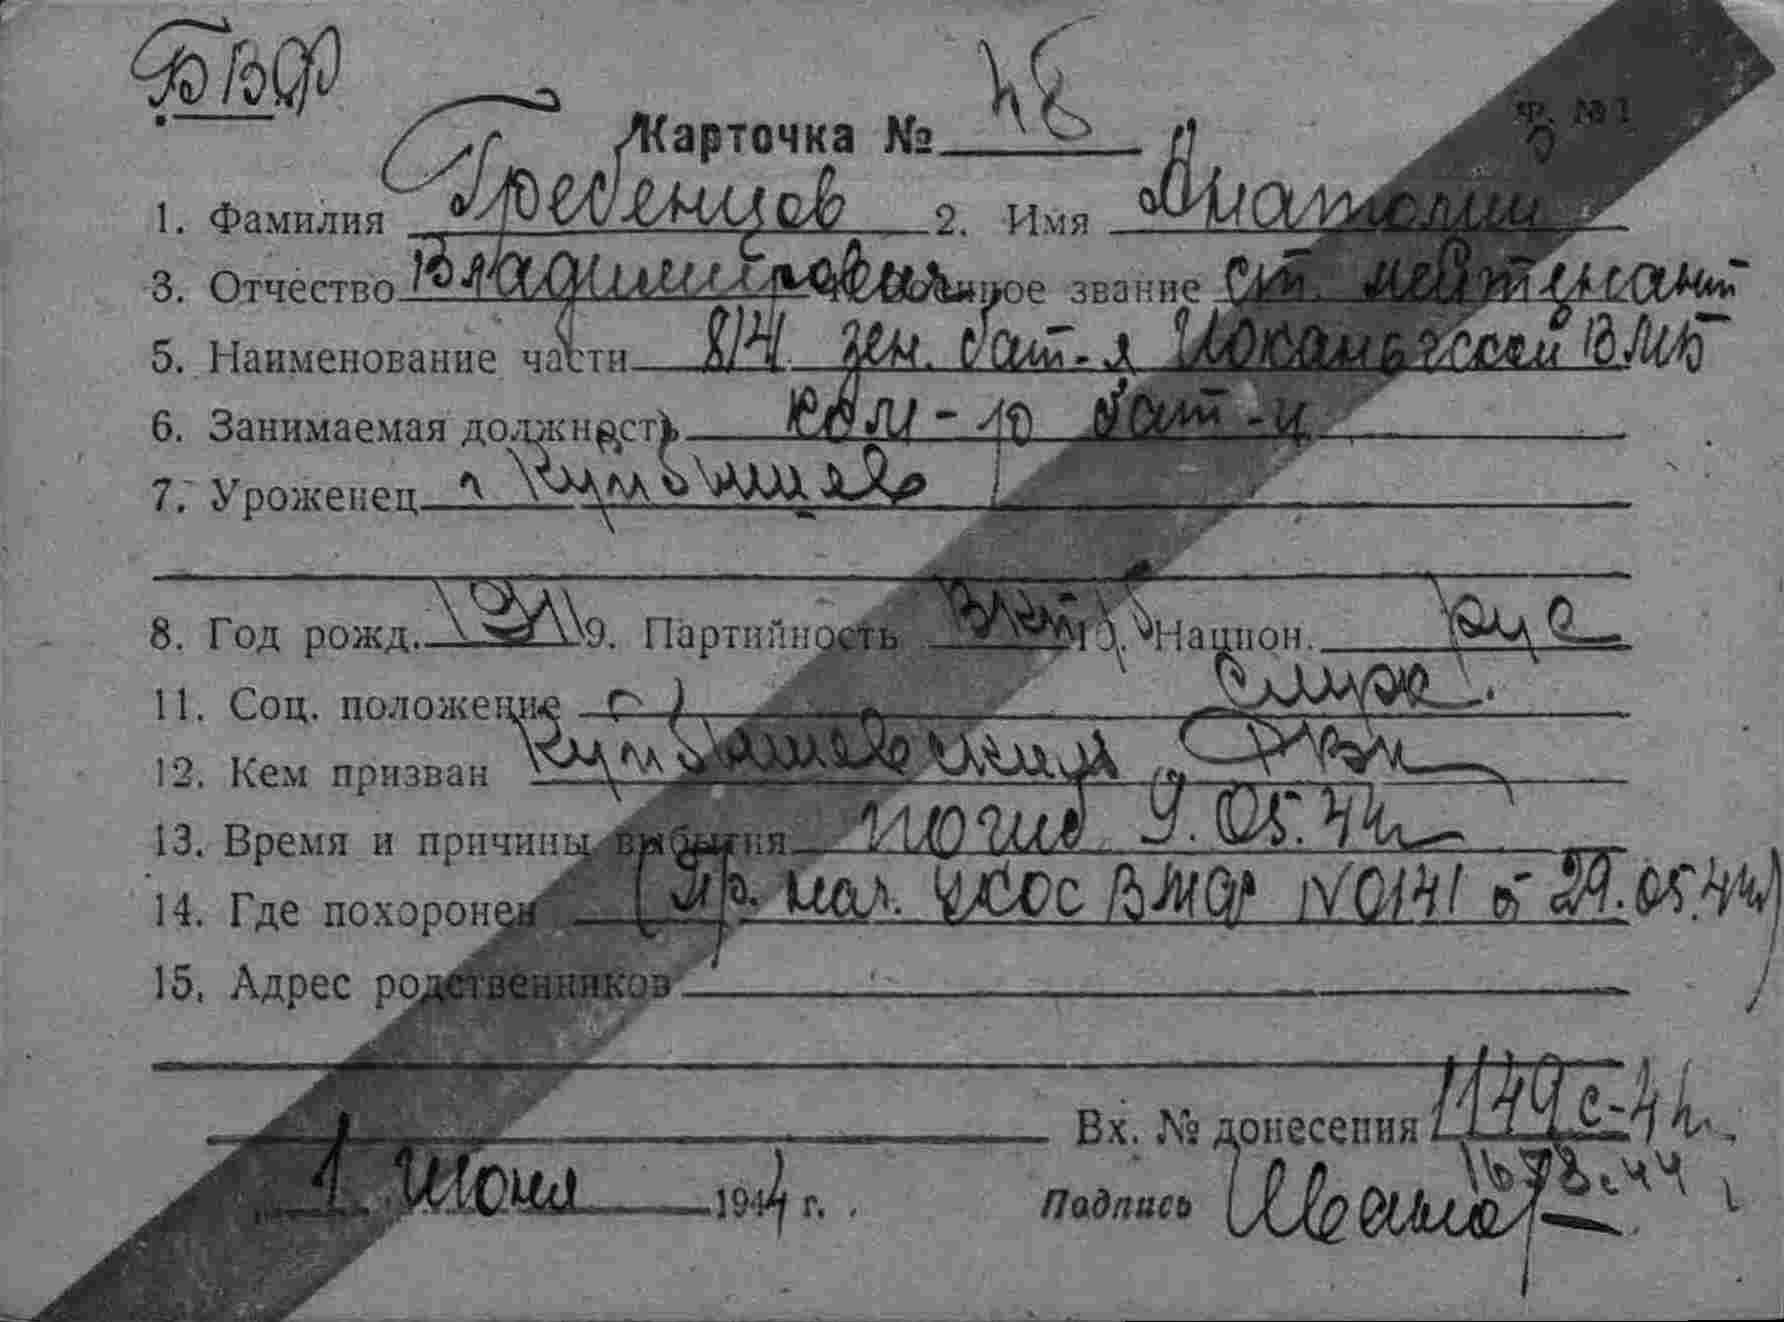 БВФ
Карточка №
Ф. №1
1. Фамилия Гребенцов 2. Имя Анатолий
3. Отчество Владимирович нное звание ст. лейтенант
5. Наименование части 814 зен. бат-я Иоканьгской ВМБ
6. Занимаемая должность ком-р бат-и
7. Уроженец г Куйбышев
8. Год рожд. 1911 9. Партийность ВКПб 10. Национ. рус
11. Соц. положение служ.
12. Кем призван Куйбышевским РВК
13. Время и причины выбытия погиб 9.05.44г
14. Где похоронен (Пр. нач. УКОС ВМФ №0141 от 29.05.44г)
15. Адрес родственников
Вх. № донесения 1149с-44г.
1678с.44
1 июня 1944 г. Подпись